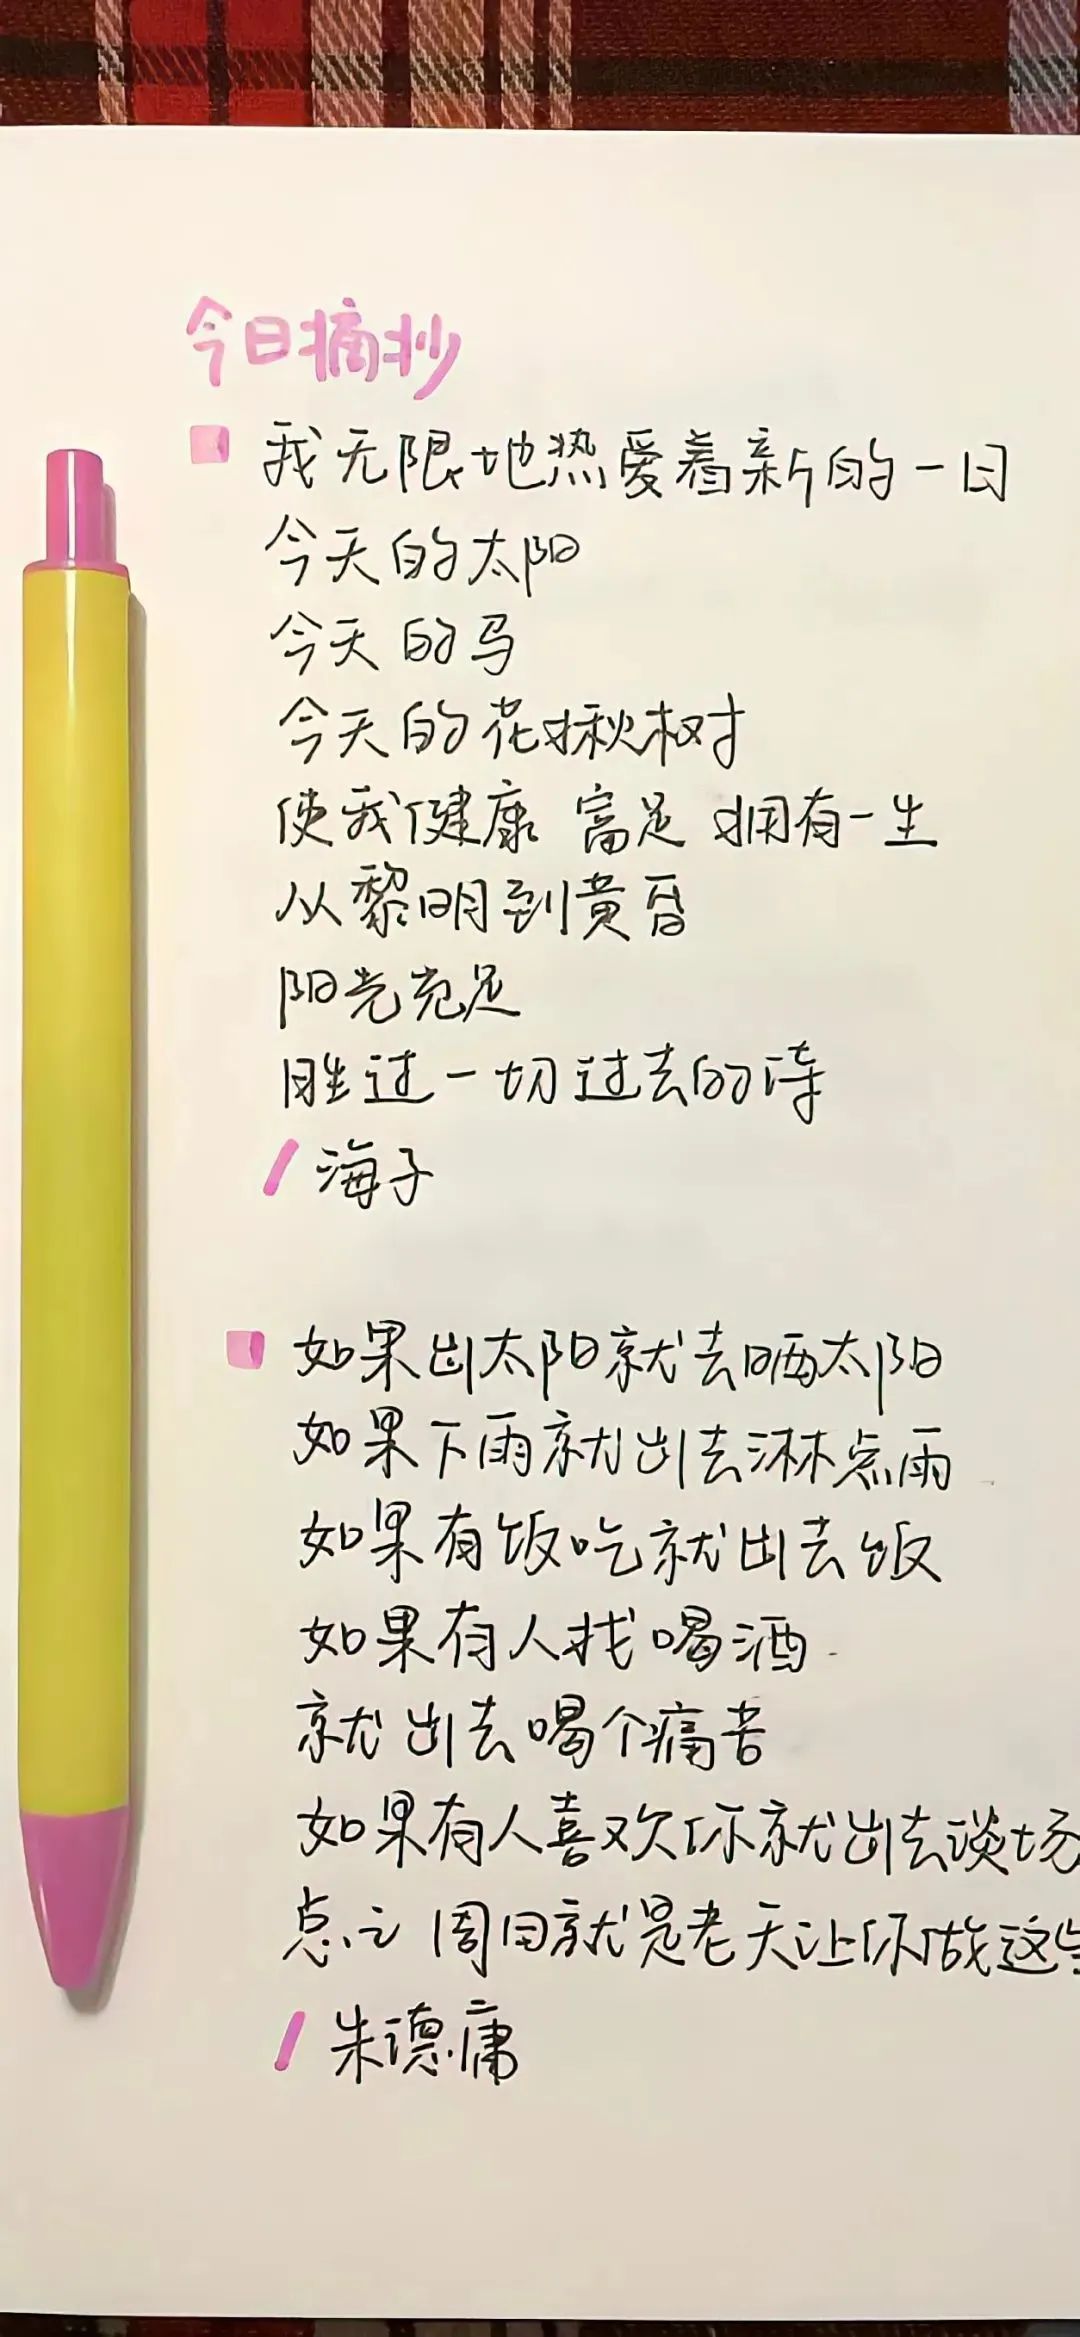 今日摘抄
我无限地热爱着新的一日
今天的太阳
今天的马
今天的花楸树
使我健康 富足 拥有一生
从黎明到黄昏
阳光充足
胜过一切过去的诗
海子
如果出太阳就去晒太阳
如果下雨就出去淋点雨
如果有饭吃就出去饭
如果有人找喝酒
就出去喝个痛苦
如果有人喜欢你就出去谈场
总之 周日就是老天让你做这些
朱德庸